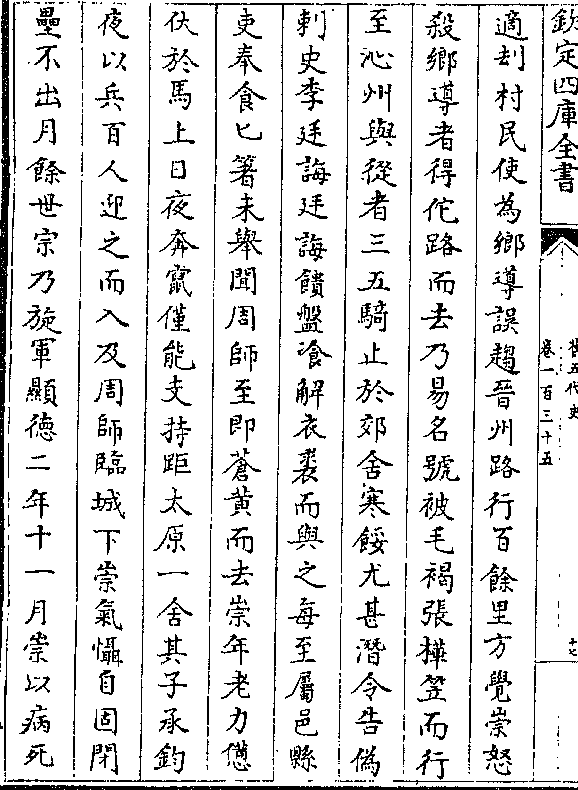 欽定四庫全書
舊五代史
卷一百三十五
十七
適刦村民使為鄉導誤趨晉州路行百餘里方覺崇怒
殺鄉導者得佗路而去乃易名號被毛褐張樺笠而行
至沁州與從者三五騎止於郊舍寒餒尤甚潛令告偽
刺史李廷誨廷誨饋盤飡解衣裘而與之每至屬邑縣
吏奉食匕箸未舉聞周師至即蒼黄而去崇年老力憊
伏於馬上日夜奔竄僅能支持距太原一舍其子承鈞
夜以兵百人迎之而入及周師臨城下崇氣懾自固閉
壘不出月餘世宗乃旋軍顯德二年十一月崇以病死